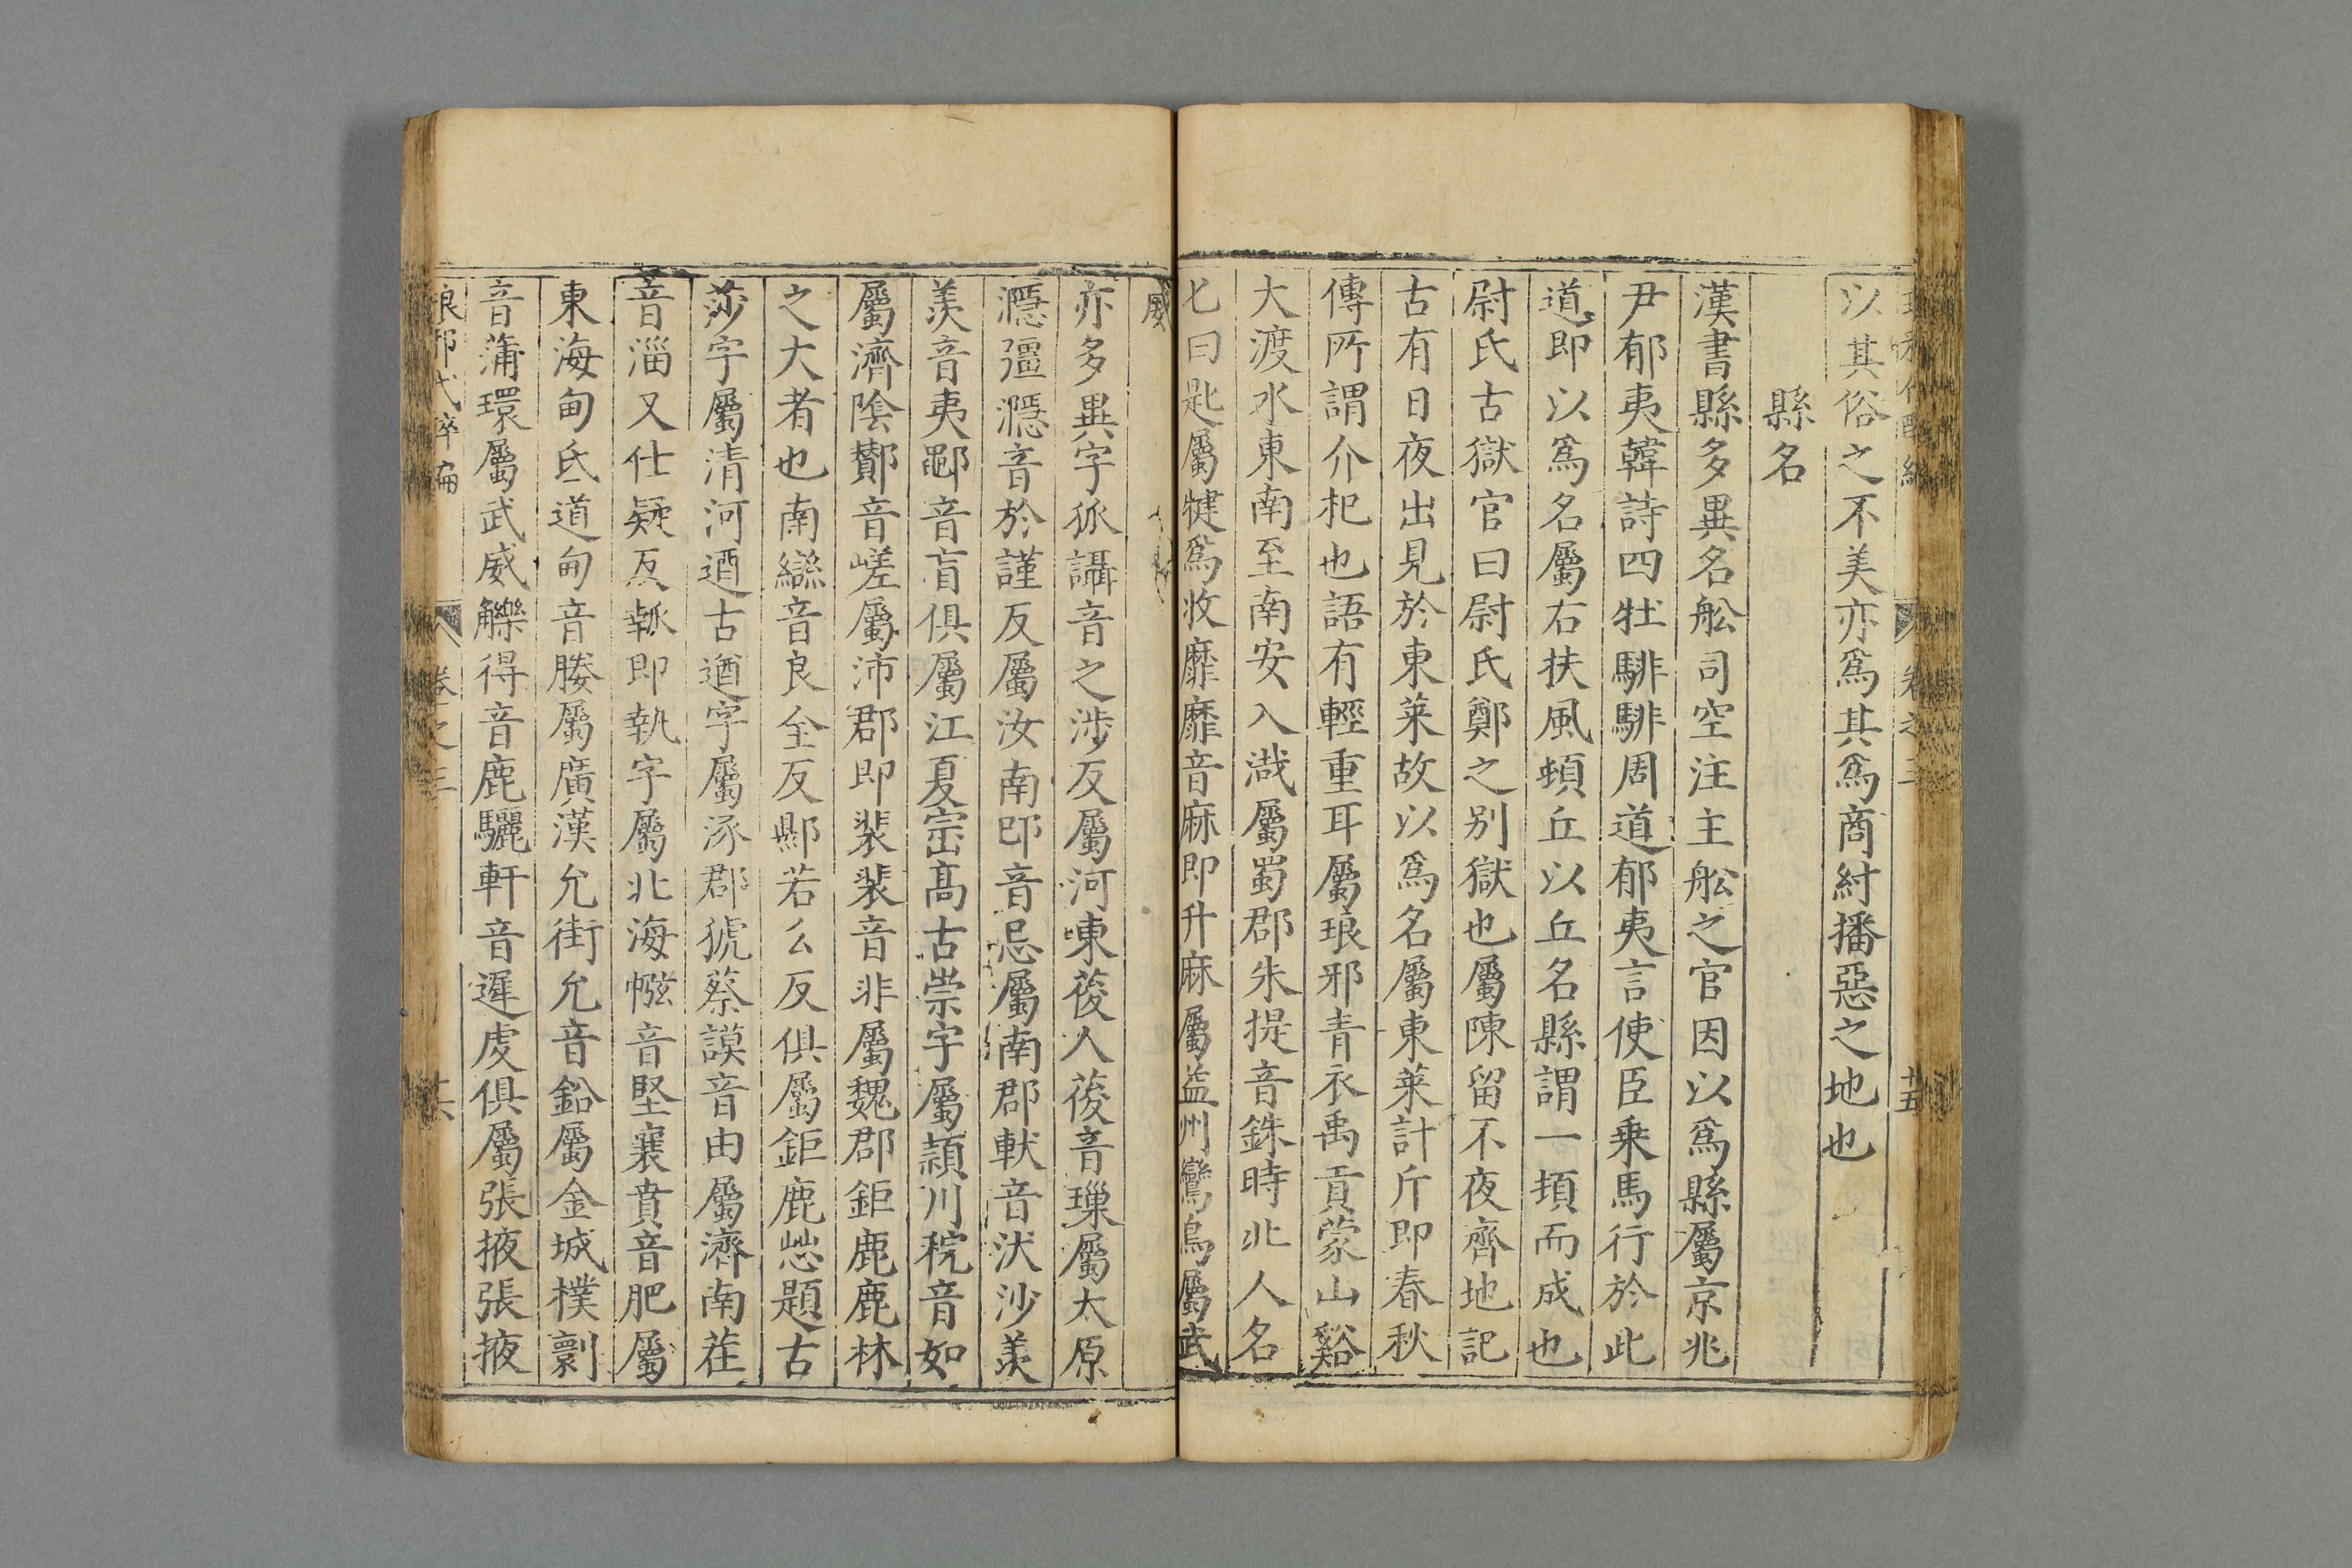 以其俗之不美亦爲其爲商紂播惡之地也
縣名
漢書縣多異名舩司空注主舩之官因以爲縣屬京兆
尹郁夷韓詩四牡騑騑周道郁夷言使臣乗馬行於此
道即以爲名屬右扶風頓丘以丘名縣謂一頃而成也
尉氏古獄官曰尉氏鄭之别獄也屬陳留不夜齊地記
古有日夜出見於東萊故以爲名屬東萊計斤即春秋
傳所謂介杞也語有輕重耳屬琅邪青衣禹貢蒙山谿
大渡水東南至南安入渽屬蜀郡朱提音銖時北人名
匕曰匙屬犍爲收靡靡音麻即升麻屬益州鸞鳥屬武
威
亦多異字狐讘音之涉反屬河東葰人葰音璅屬太原
濦彊濦音於謹反屬汝南邔音忌屬南郡軑音汏沙羨
羨音夷鄳音盲俱屬江夏崈高古崇字屬頴川梡音如
屬濟隂酇音嵯屬沛郡即裴裴音非屬魏郡鉅鹿鹿林
之大者也南䜌音良全反鄡若么反俱屬鉅鹿㟭題古
莎字屬清河逎古遒字屬涿郡猇蔡謨音由屬濟南茬
音淄又仕疑反瓡即執字屬北海㡉音堅襄賁音肥屬
東海甸氐道甸音媵屬廣漢允街允音鉛屬金城樸劅
音蒲環屬武威觻得音鹿驪軒音遲虔俱屬張掖張掖
琅邪代醉編 卷之三 十六